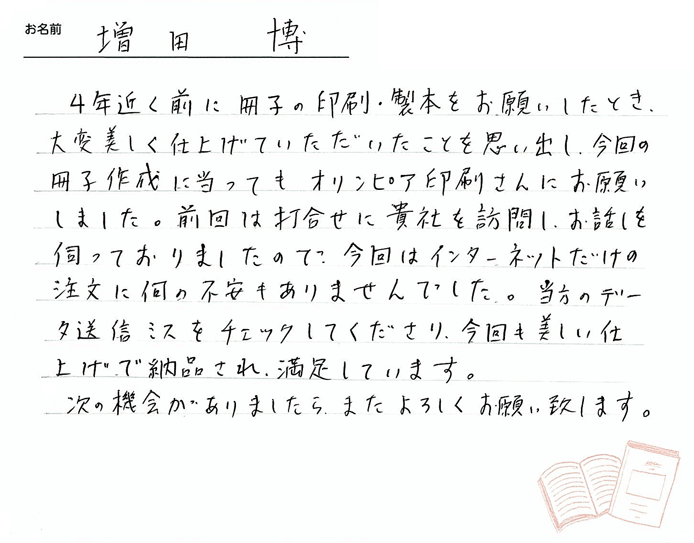 お名前 増田 博
4年近く前に冊子の印刷・製本をお願いしたとき、
大変美しく仕上げていただいたことを思い出し、今回の
冊子作成に当ってもオリンピア印刷さんにお願い
しました。前回は打合せに貴社を訪問し、お話しを
伺っておりましたので、今回はインターネットだけの
注文に何の不安もありませんでした。当方のデー
タ送信ミスをチェックしてくださり、今回も美しい仕
上げで納品され、満足しています。
次の機会がありましたら、またよろしくお願い致します。